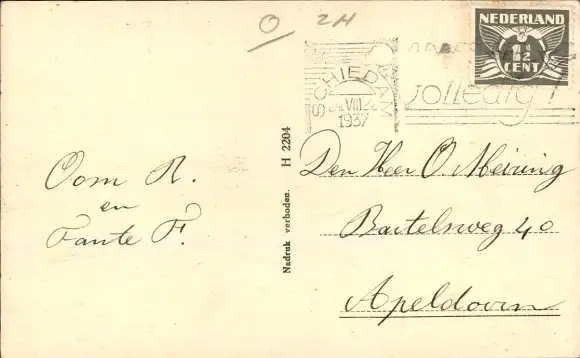 O 2H
NEDERLAND
1½
CENT
SCHIEDAM
VIII
1937
volledig!
Oom R.
en
Tante F.
H 2204
Nadruk verboden.
Den Heer O. Meiring
Bartelsweg 40
Apeldoorn